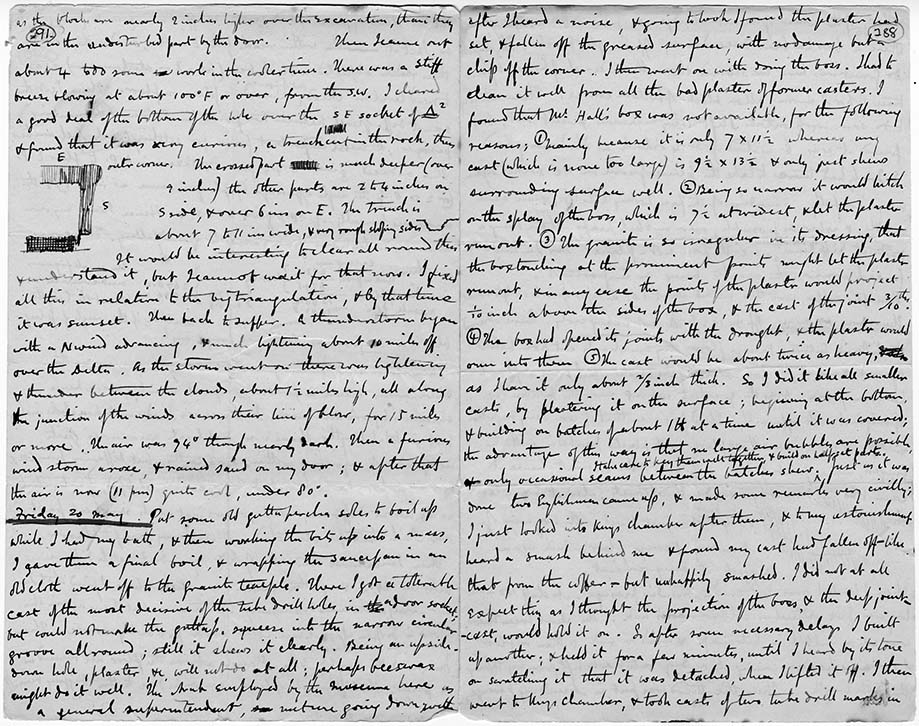 291
as the blocks are nearly 2 inches higher over the Excavation, than they
are in the undisturbed part by the door. Then I came out
about 4 to do some work in the cooler time. There was a stiff
breeze blowing at about 100°F or over, from the S.W. I cleared
a good deal of the bottom of the hole over the S E socket of Δ²
& found that it was very curious, a trench cut in the rock, this
outcorner. The crossed part is much deeper (over
9 inches) the other parts are 2 to 4 inches on
S side, & over 6 ins on E. The trench is
about 7 to 11 in wide, & very rough sloping sides
E
S
It would be interesting to clear all round this
& understand it, but I cannot wait for that now. I fixed
all this in relation to the big triangulation, & by that time
it was sunset. Then back to supper. A thunderstorm began
with a N wind advancing, & much lightning about 10 miles off
over the Delta. As the storm went on there was lightening
& thunder between the clouds, about 1½ miles high, all along
the junction of the winds across their line of blow, for 15 miles
or more. The air was 94° though nearly dark. Then a furious
wind storm arose, & rained sand on my door; & after that
the air is now (11 pm) quite cool, under 80°.
Friday 20 May. Put some old gutta percha soles to boil up
while I had my bath, & then working the bits up into a mass,
I gave them a final boil, & wrapping the saucepan in an
old cloth went off to the granite temple. There I got a tolerable
cast of the most decisive of the tube drill holes, in a door socket;
but could not make the guttap. squeeze into the narrow circular
groove all round; still it shews it clearly. Being an upside
down hole, plaster, &c will not do at all; perhaps beeswax
might do it well. The Arab employed by the museum here as
a general superintendent, met me going down with
288
after I heard a noise, & going to look I found the plaster had
set, & fallen off the greased surface, with no damage but a
chip off the corner. I then went on with doing the boss. I had to
clean it well from all the bad plaster of former casters. I
found that Mr. Hall's box was not available, for the following
reasons; ① mainly because it is only 7 × 11½ whereas my
cast (which is none too large) is 9½ × 13½ & only just shews
surrounding surface well. ② Being so narrow it would hitch
on the splay of the boss, which is 7½ at widest, & let the plaster
run out. ③ The granite is so irregular in its dressing, that
the box touching at the prominent points might let the plaster
run out, & in any case the points of the plaster would project
1/10 inch above the sides of the box, & the cast of the joint 3/10 ths
④ The box had opened its joints with the drought, & the plaster would
run into them ⑤ The cast would be about twice as heavy,
as I have it only about 2/3 inch thick. So I did it like all smaller
casts, by plastering it on the surface; beginning at the bottom,
& building on batches of about 1 lb at a time until it was covered;
the advantage of this way is that no large air bubbles are possible
& only occasional seams between the batches shew. Just as it was
I take care to keep them well together, & build on half set parts.
done two Englishmen came up, & made some remarks very civilly;
I just looked into Kings chamber after them, & to my astonishment
heard a smash behind me & found my cast had fallen off like
that from the coffer – but unhappily smashed. I did not at all
expect this as I thought the projection of the boss, & the deep joint-
-cast, would hold it on. So after some necessary delay I built
up another; & held it for a few minutes, until I heard by its tone
on scratching it that it was detached, when I lifted it off. I then
went to Kings chamber, & took casts of two tube drill marks in